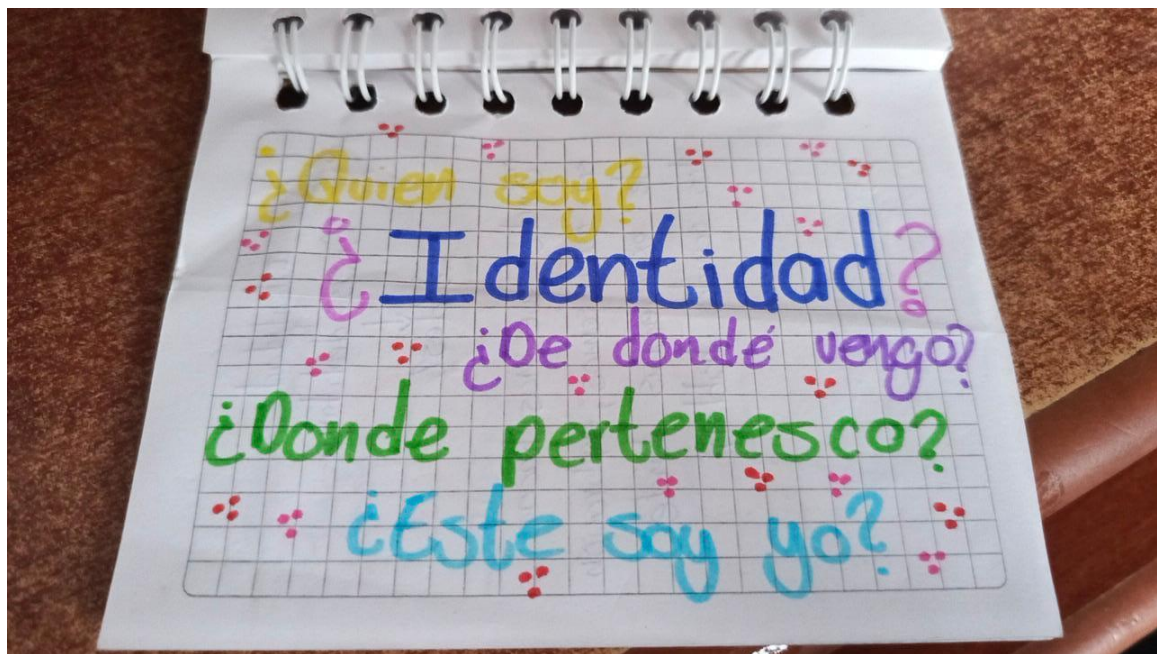 ¿Quien soy?
¿Identidad?
¿De dondé vengo?
¿Donde pertenesco?
¿Este soy yo?